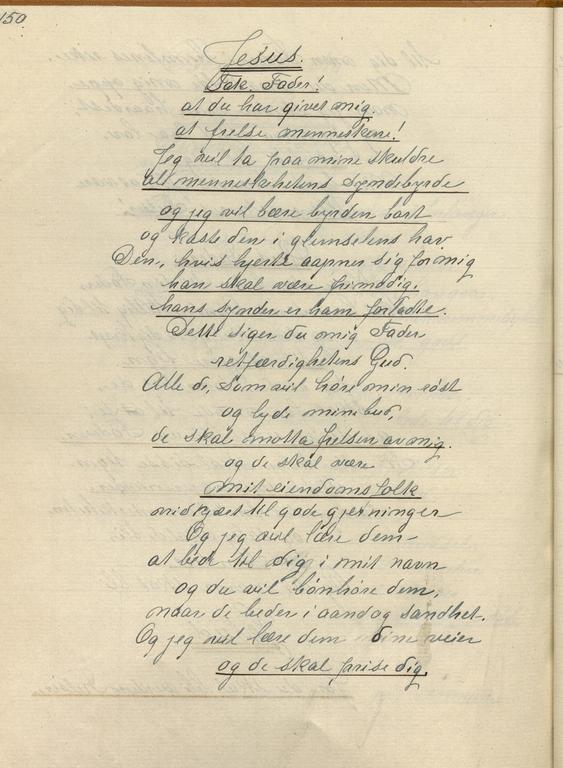 150.
Jesus.
Tak, Fader!
at du har givet mig.
at frelse menneskene!
Jeg vil ta paa mine skuldre
all menneskehetens syndebyrde
og jeg vil bære byrden bort
og kaste den i glemselens hav.
Den, hvis hjerte aapner sig for mig
han skal være frimodig.
hans synder er ham forladte.
Dette siger du mig Fader
retfærdighetens Gud.
Alle de, som vil høre min røst
og lyde mine bud,
de skal motta frelsen av mig.
og de skal være
mit eiendomsfolk
nidkjært til gode gjerninger
Og jeg vil lære dem-
at bede til dig i mit navn
og du vil bønhøre dem,
naar de beder i aand og sandhet.
Og jeg vil lære dem dine veier
og de skal prise dig.